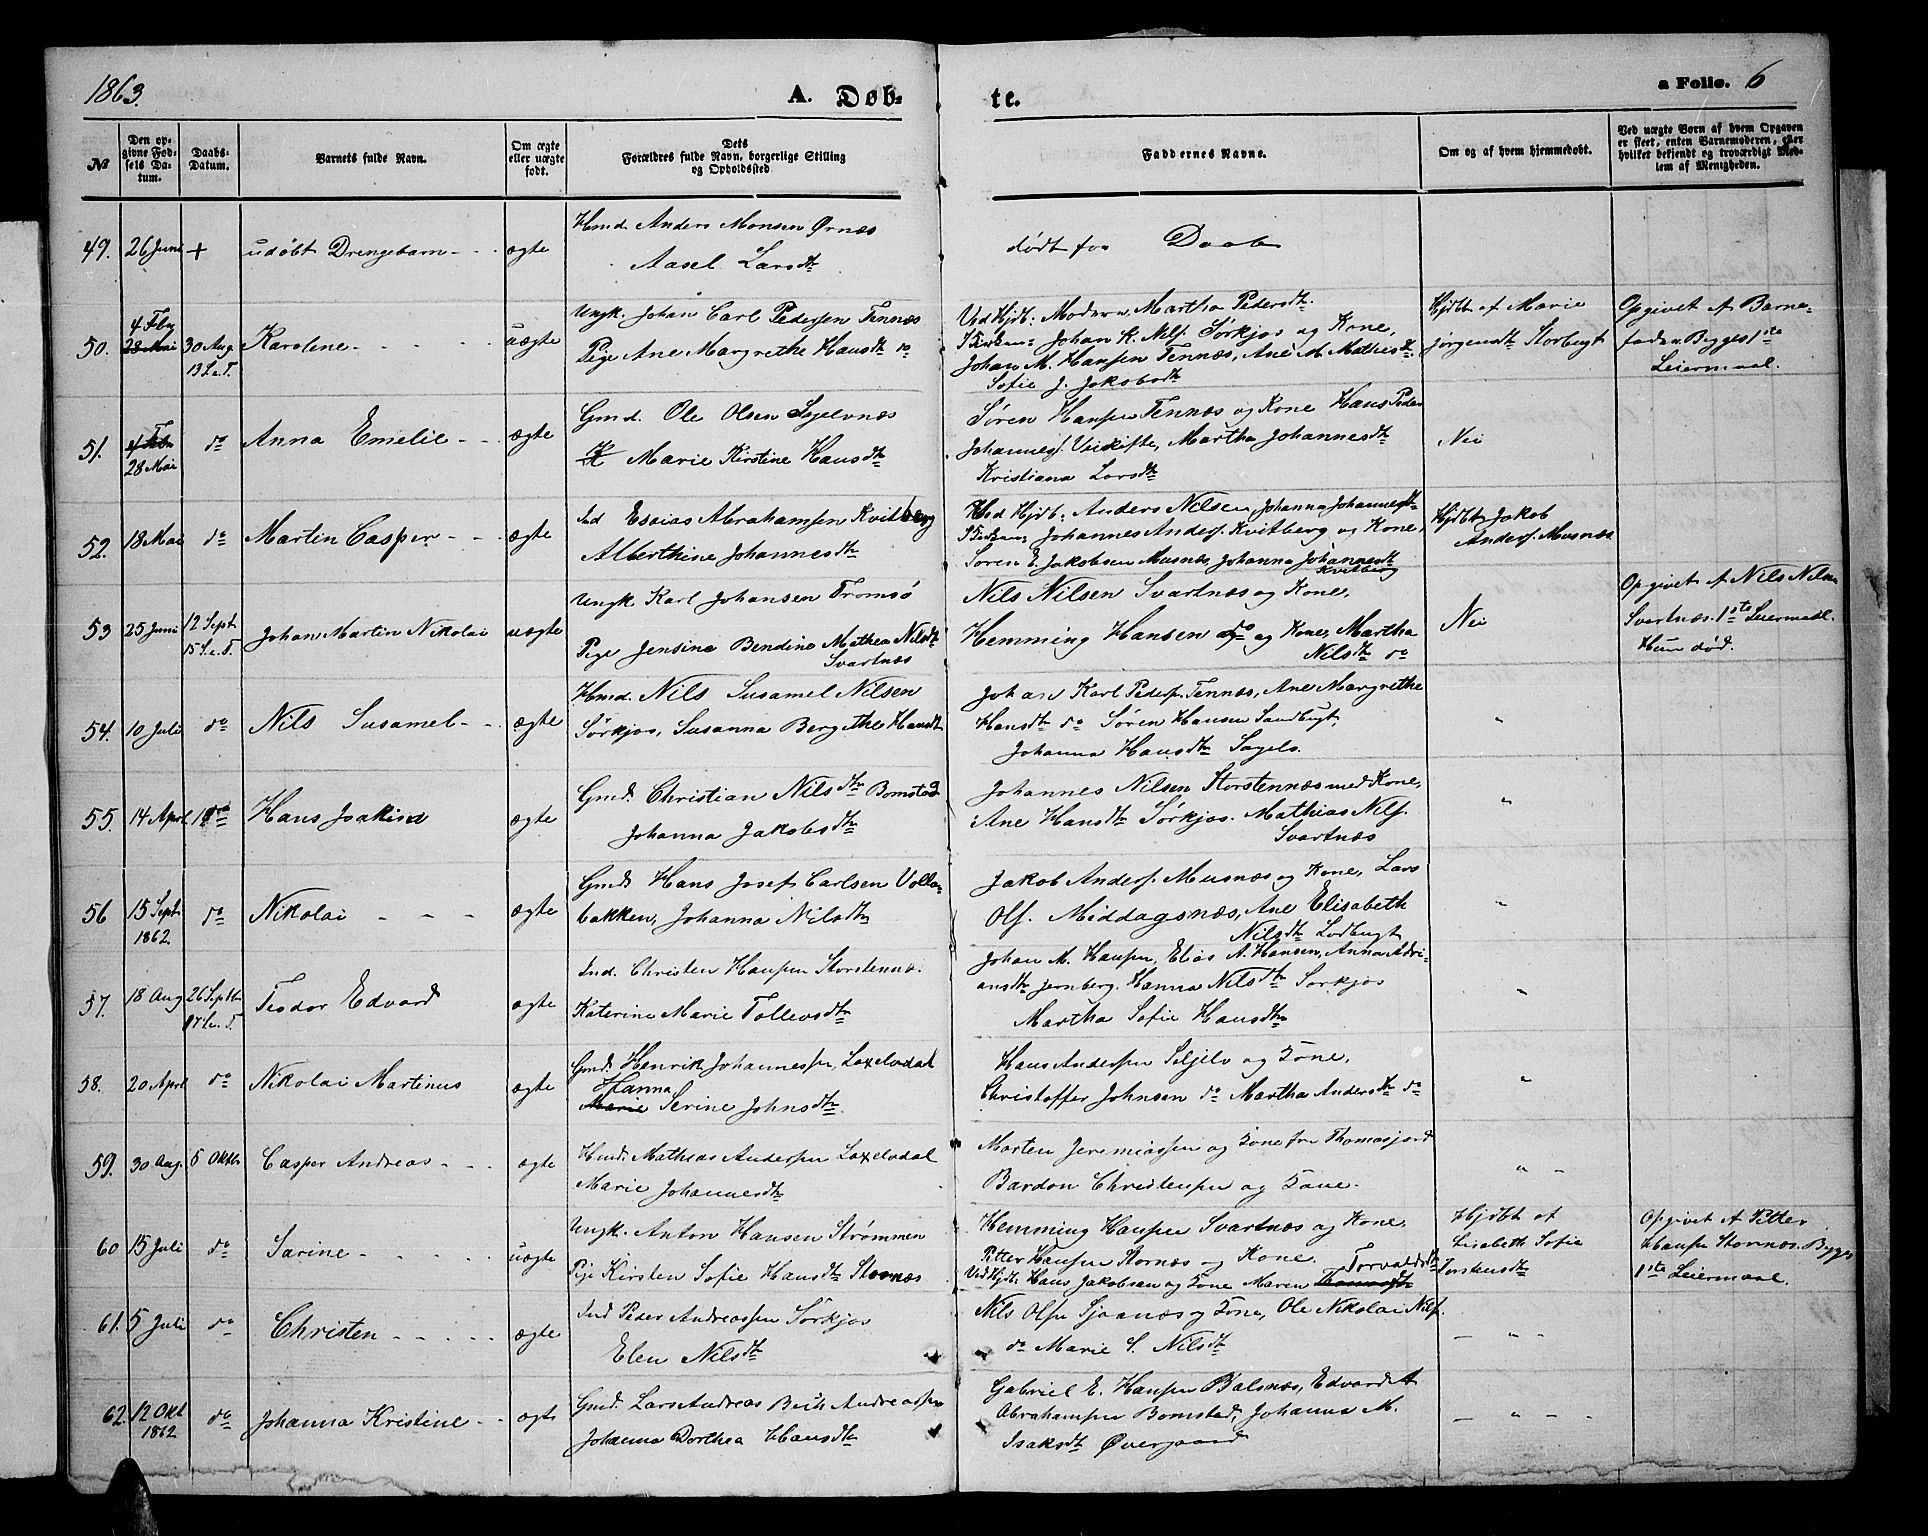 1863.
A. Døb-
te.
a Folio. 6
№
Den op-
givne Fød-
sels Da-
tum.
Daabs-
Datum.
Barnets fulde Navn.
Om ægte
eller uægte
født.
Dets
Forældres fulde Navn, borgerlige Stilling
og Opholdssted
Faddernes Navne.
Om og af hvem hjemmedøbt.
Ved uægte Børn af hvem Opgaven
er skeet, enten Barnemoderen, eller
hvilket bekjendt og troværdigt Med-
lem af Menigheden.
49. 26 Juni + udøbt Drengebarn - - ægte
Hmd. Anders Monsen Ørnæs
Aasel Larsdtr
dødt før Daab
50. 4 Feby 28 Mai 30 Aug. 13 S.e.T. Karoline - - - - uægte
Ungk. Johan Carl Pedersen Tennæs
Pige Ane Margrethe Hansdtr do
Ved Hjdb: Moderen, Martha Pedersdtr.
I Kirken: Johan K. Nils. Sørkjos og Kone,
Johan M. Hansen Tennæs, Ane M. Mathisdtr.
Sofie J. Jakobsdtr
Hjdbt af Marie
Jørgensdtr Storbugt
Opgivet af Barne-
faderen Begges 1ste
Leiermaal.
51. 4 Feb 28 Mai do Anna Emelie - - ægte
Gmd. Ole Olsen Sagelvnæs
K Marie Kirstine Hansdtr
Søren Hansen Tennæs og Kone Hans Peder
Johannes. Veiskifte, Martha Johannesdtr
Kristiana Larsdtr
Nei
52. 18 Mai do Martin Casper - - ægte
Ind Esaias Abrahamsen Kvitberg
Alberthine Johannesdtr
Ved Hjdb: Anders Nilsen, Johanna Johannesdtr
I Kirken: Johannes Anders. Kvitberg og Kone,
Søren E. Jakobsen Musnæs, Johanna Johannesdtr
Kvitberg
Hjdbt Jakob
Anders. Musnæs
53 25 Juni 12 Sept 15 S.e.T. Johan Martin Nikolai uægte
Ungk Karl Johansen Tromsø
Pige Jensine Bendine Mathea Nilsdtr
Svartnæs
Nils Nilsen Svartnæs og Kone,
Hemming Hansen do og Kone, Martha
Nilsdtr do
Nei
Opgivet af Nils Nilsen
Svartnæs. 1ste Leiermaal.
Hun død.
54. 10 Juli do Nils Susamel - - ægte
Hmd. Nils Susamel Nilsen
Sørkjos, Susanna Bergithe Hansdtr
Johan Karl Peders. Tennæs, Ane Margrethe
Hansdtr do Søren Hansen Sandbugt,
Johanna Hansdtr Sagelv.
"
55. 14 April do Hans Joakim ægte
Gmd. Christian Nilsdtr Bomstad
Johanna Jakobsdtr
Johannes Nilsen Storstennæs med Kone,
Ane Hansdtr Sørkjos. Mathias Nils.
Svartnæs
"
56 15 Sept 1862 do Nikolai - - - ægte
Gmd. Hans Josef Carlsen Volla-
bakken, Johanna Nilsdtr
Jakob Anders. Musnæs og Kone, Lars
Ols. Middagsnæs, Ane Elisabeth
Nilsdtr Lodbugt
"
57. 18 Aug 26 Septb 17 S.e.T. Teodor Edvard ægte
Ind. Christen Hansen Storstennæs.
Katerine Marie Tollevsdtr
Johan M. Hansen, Elias A. Hansen, Anna Adri-
ansdtr Jernberg. Hanna Nilsdtr Sørkjos
Martha Sofie Hansdtr
"
58. 20 April do Nikolai Martinus ægte
Gmd. Henrik Johannesen, Laxelvdal
Hanna
Marie Serine Johnsdtr
Hans Andersen Seljelv og Kone,
Christoffer Johnsen do Martha Andersdtr do
"
59. 30 Aug. 5 Oktb Casper Andreas - - - ægte
Hmd. Mathias Andersen Laxelvdal
Marie Johannesdtr
Morten Jeremiassen og Kone fra Thomasjord
Bardon Christensen og Kone.
"
60 15 Juli do Sarine - - - - uægte
Ungk. Anton Hansen Strømmen
Pige Kirsten Sofie Hansdtr Stornæs
Hemming Hansen Svartnæs og Kone,
Pitter Hansen Stornæs og Kone. Torvaldsdtr
Ved Hjdb. Hans Jakobsen og Kone Maren
Hjdbt af
Lisabeth Sofie
Torstensdtr
Opgivet af Pitter
Hansen Stornæs. Begges
1ste Leiermaal.
61. 5 Juli do Christen - - - - - ægte
Ind Peder Andreassen Sørkjos
Elen Nilsdtr
Nils Olsen Sjoanæs og Kone, Ole Nikolai Nils.
do Marie S. Nilsdtr
"
62 12 Okt 1862 do Johanna Kristine - - ægte
Gmd. Lars Andreas Beck Andreassen
Johanna Dorthea Hansdtr
Gabriel E. Hansen Balsnæs, Edvard A
Abrahamsen Bomstad, Johanna M.
Isaksdtr Øvergaard
"